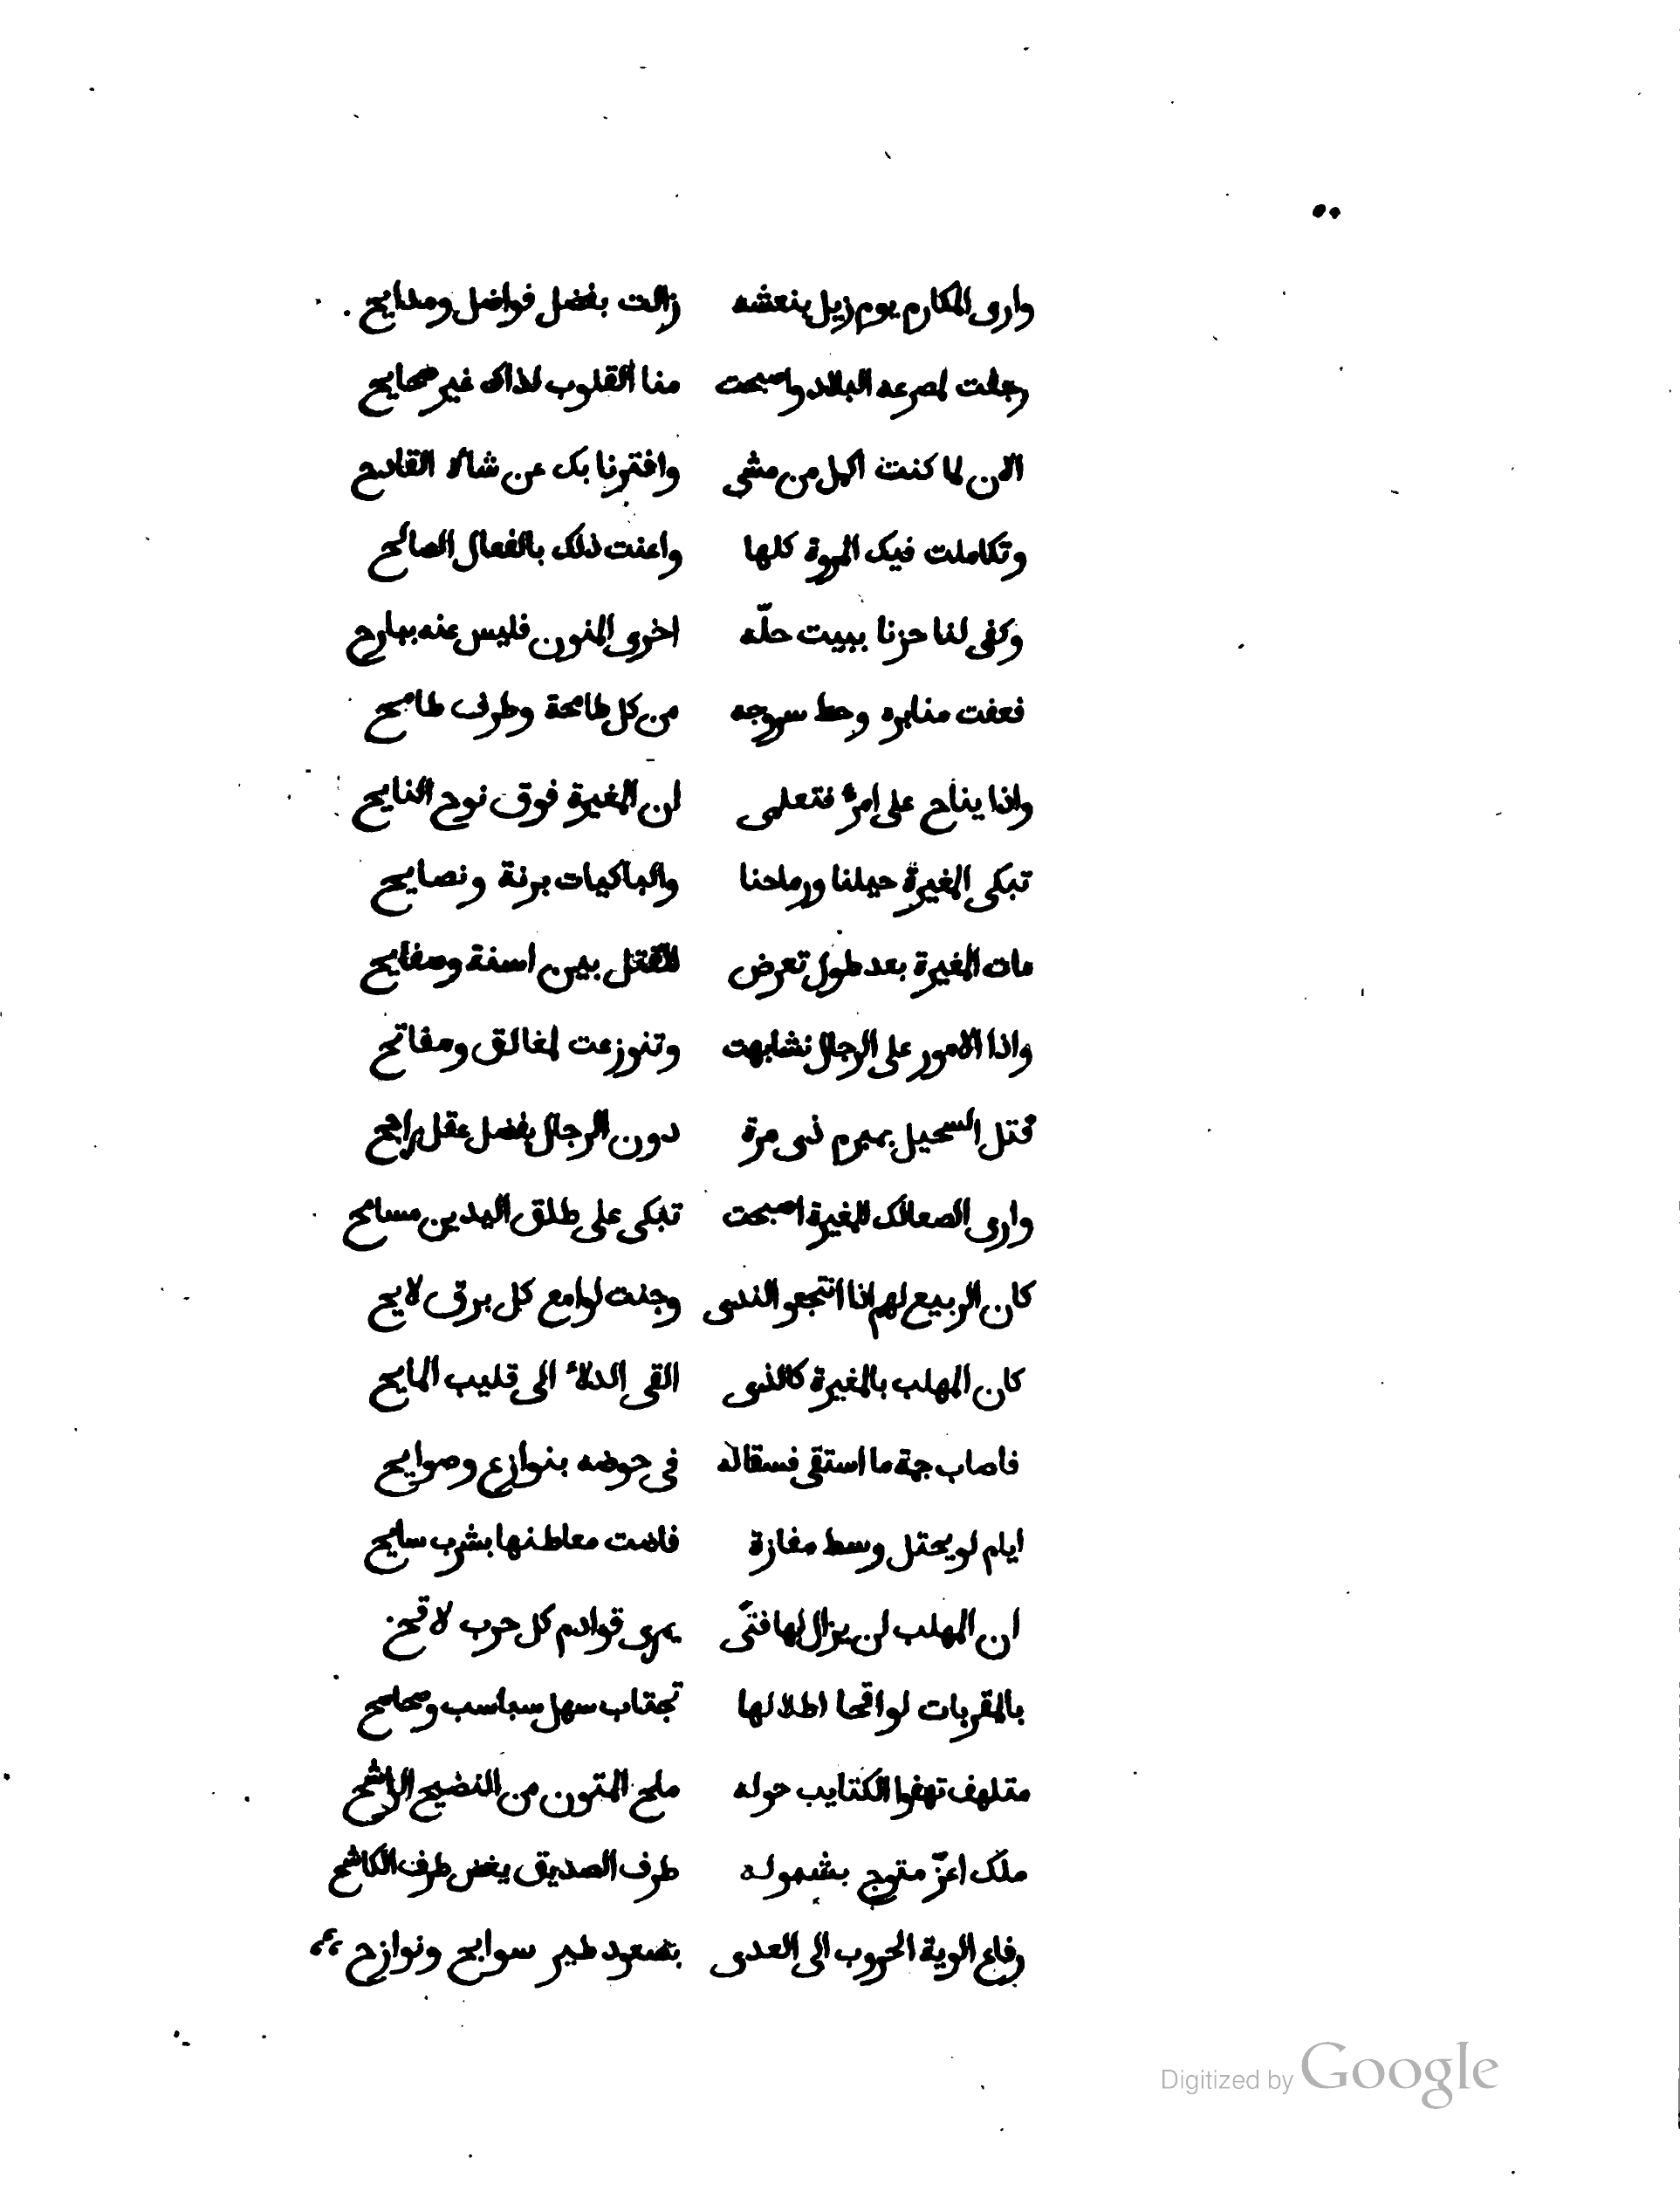 وارى المكارم يوم زيل بنعشه زالت بفضل فواضل ومدايح
رجفت لمصرعه البلاد واصبحت منا القلوب لذاك غير صحايح
الان لما كنت اكمل من مشى وافتر نابك عن شباة القادح
وتكاملت فيك المروة كلها واعنت ذلك بالفعال الصالح
وكفى لنا حزنا ببيت حلّه اخرى المنون فليس عنه ببارح
فعفت منابره وحط سروجه من كل طامحة وطرف طامح
واذا يناح على امرء فتعلمى ان المغيرة فوق نوح النايح
تبكى المغيرة خيلنا ورماحنا والباكيات برنة وتصايح
مات المغيرة بعد طول تعرض للقتل بين اسنة وصفايح
واذا الامور على الرجال تشابهت وتنوزعت لمغالق ومفاتح
فتل السحيل بمبرم ذى مرة دون الرجال بفضل عقل راجح
وارى الصعالك للمغيرة اصبحت تبكى على طلق اليدين مسامح
كان الربيع لهم اذا انتجعو الندى وجنت لوامع كل برق لايح
كان المهلب بالمغيرة كالذى القى الدلاء الى قليب المايح
فاصاب جمة ما استقى فسقا له فى حوضه بنوازع وصوايح
ايام لو يحتل وسط مفازة فاضت معاطنها بشرب سايح
ان المهلب لن يزال لها فتًى يمرى قوادم كل حرب لاقح
بالمقربات لواقحا اطلالها تجتاب سهل سباسب وصحاصح
متلهف تهفوا الكتايب حوله ملح المتون من النضيح الراشح
ملك اعزّ متوج يشمو له طرف الصديق يغض طرف الكاشح
رفاع الوية الحروب الى العدى بصعود طير سوابح ونوازح
Digitized by Google